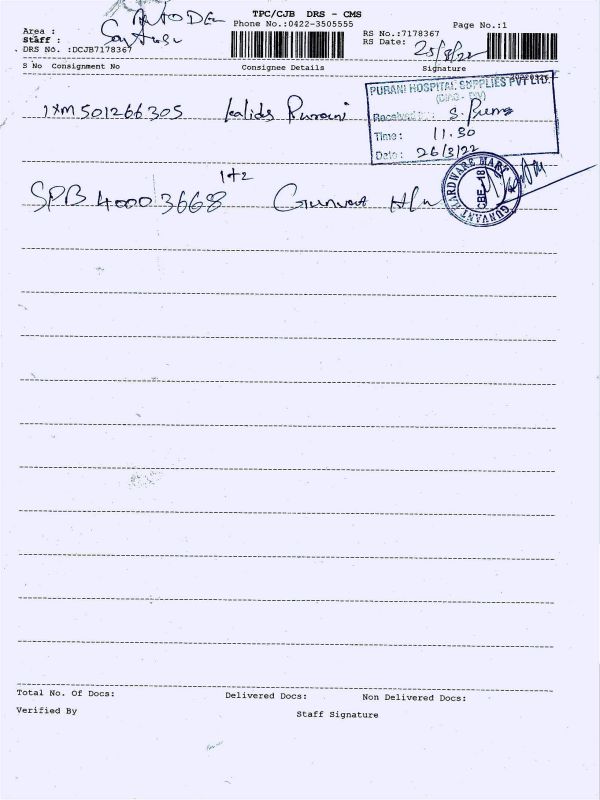 TPC/CJB DRS - CMS
Phone No.:0422-3505555
Page No.:1
Area :
Staff :
DRS No. :DCJB7178367
RS No.:7178367
RS Date: 25/3/22
S No Consignment No Consignee Details Signature
PURANI HOSPITAL SUPPLIES PVT LTD.
Received
Time: 11.30
Date: 26/3/22
1XM501266305 Purani
1+2
SPB 40003668 H/w
GUNVANT HARDWARE MART
CBE-18
Total No. Of Docs: Delivered Docs: Non Delivered Docs:
Verified By Staff Signature